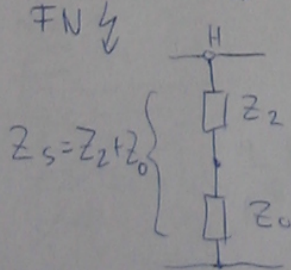 FN
H
Z2
Zs=Z2+Z0
Z0